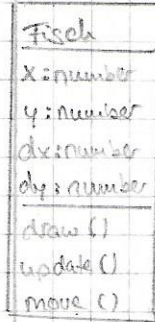 Fisch
x: number
y: number
dx: number
dy: number
draw ()
update ()
move ()